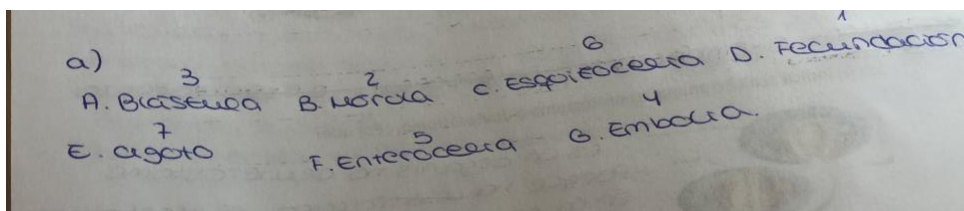 a)
3 2 6 1
A. Blástula B. Mórula C. Esquizocelia D. Fecundación
7 5 4
E. cigoto F. Enterocelia G. Embolia.